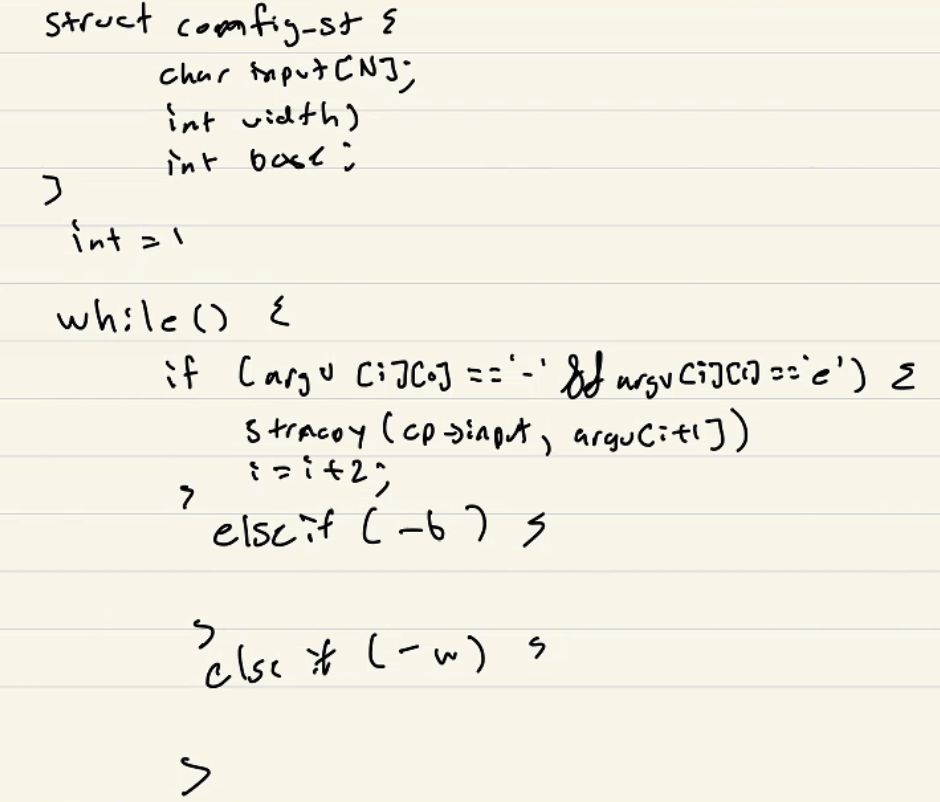 struct config_st {
char input[N];
int width;
int base;
}
int = 1
while() {
if (argv [i][0] == '-' && argv[i][1] == 'e') {
strncpy (cp->input, argv[i+1])
i = i + 2;
}
else if (-b) {
}
else if (-w) {
}